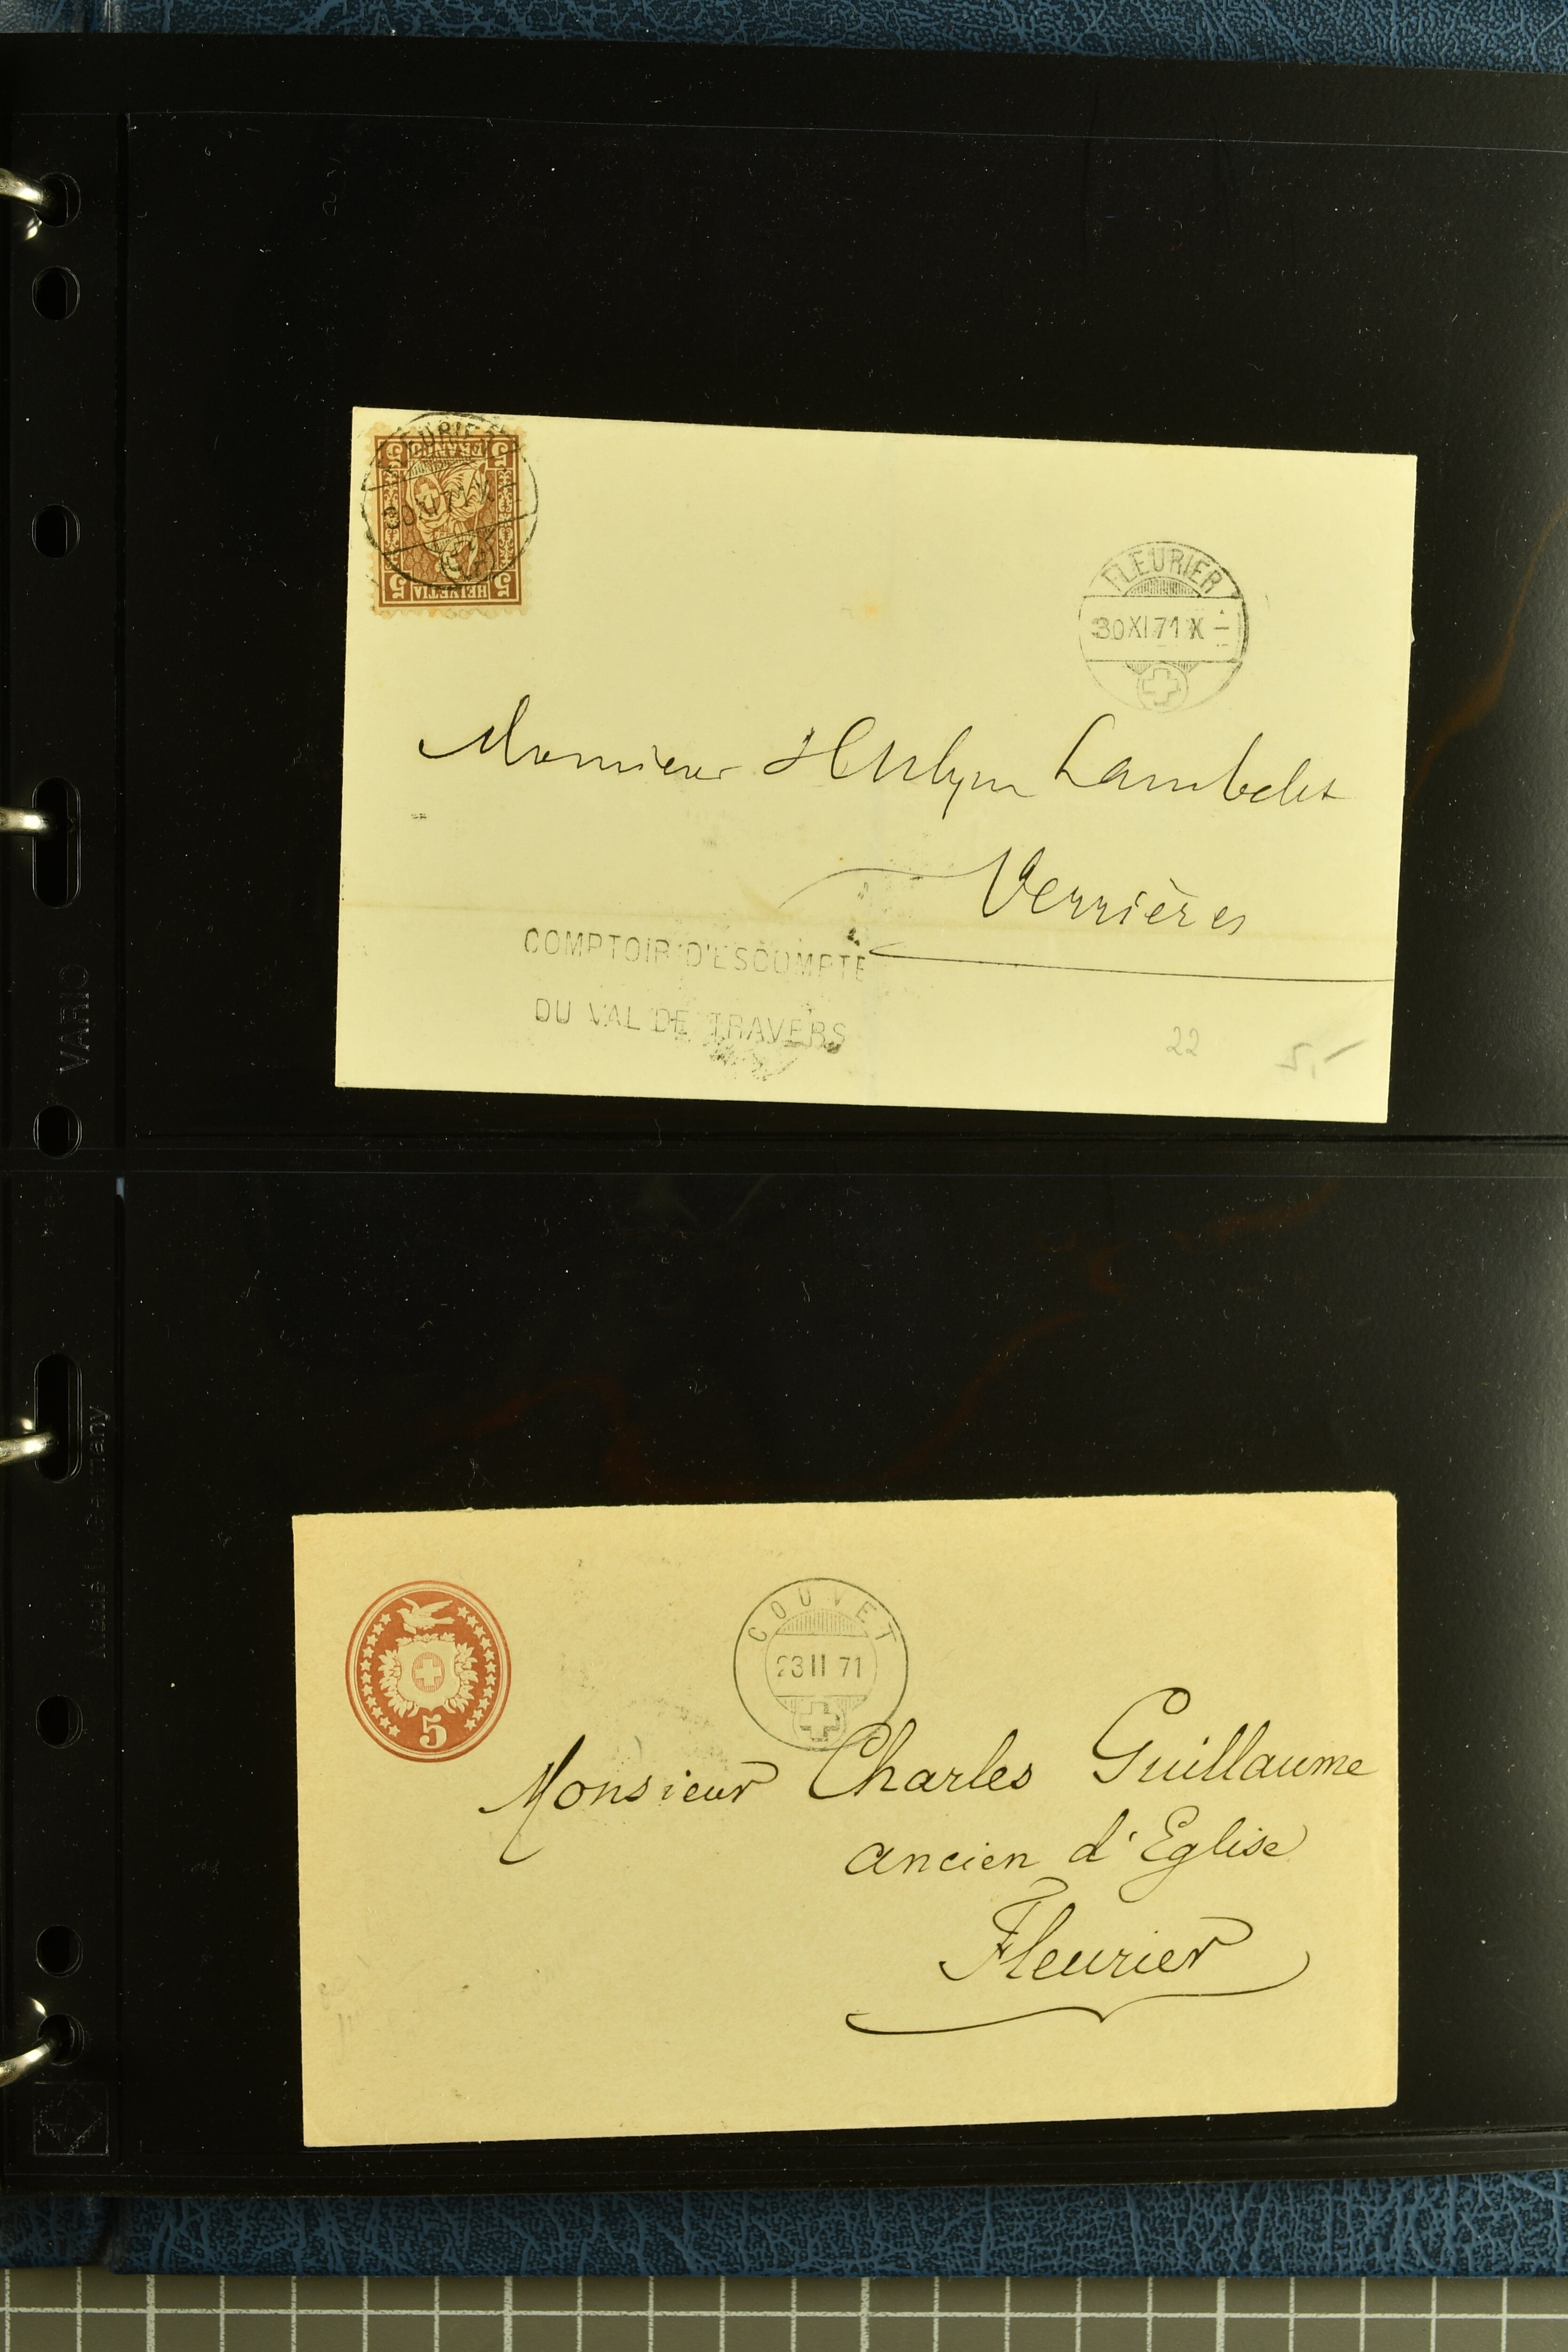 FLEURIER
30 XI 71 X
FRANCO
HELVETIA
5 5
5 5
FLEURIER
30 XI 71 X -
Monsieur
Lambelet
Verrières
COMPTOIR D'ESCOMPTE
DU VAL DE TRAVERS
22
5,-
VARIO
Made in Germany
COUVET
23 II 71
5
Monsieur Charles Guillaume
ancien d'Eglise
Fleurier